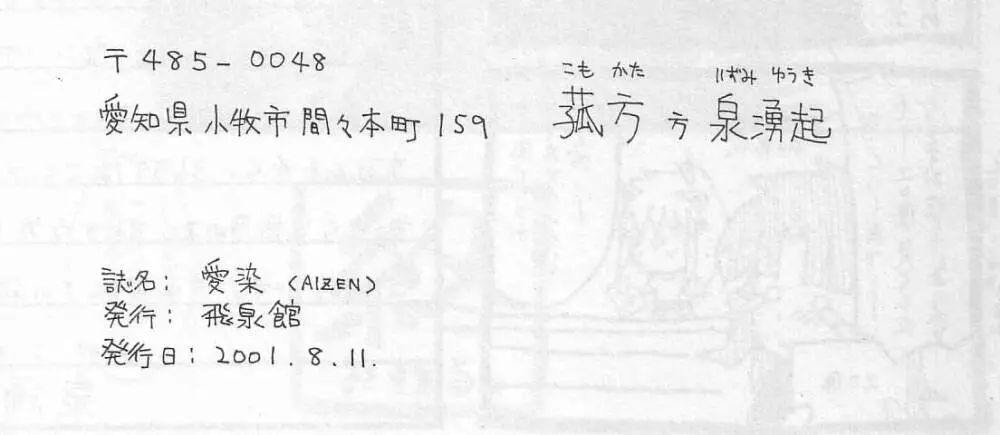 〒485-0048
こも かた いずみ ゆうき
愛知県小牧市間々本町159 菰方方 泉湧起
誌名：愛染（AIZEN）
発行：飛泉館
発行日：2001.8.11.